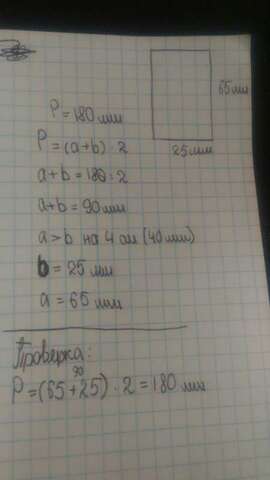 65 мм
25 мм
P = 180 мм
P = (a+b) · 2
a+b = 180 : 2
a+b = 90 мм
a > b на 4 см (40 мм)
b = 25 мм
a = 65 мм
Проверка:
90
P = (65+25) · 2 = 180 мм